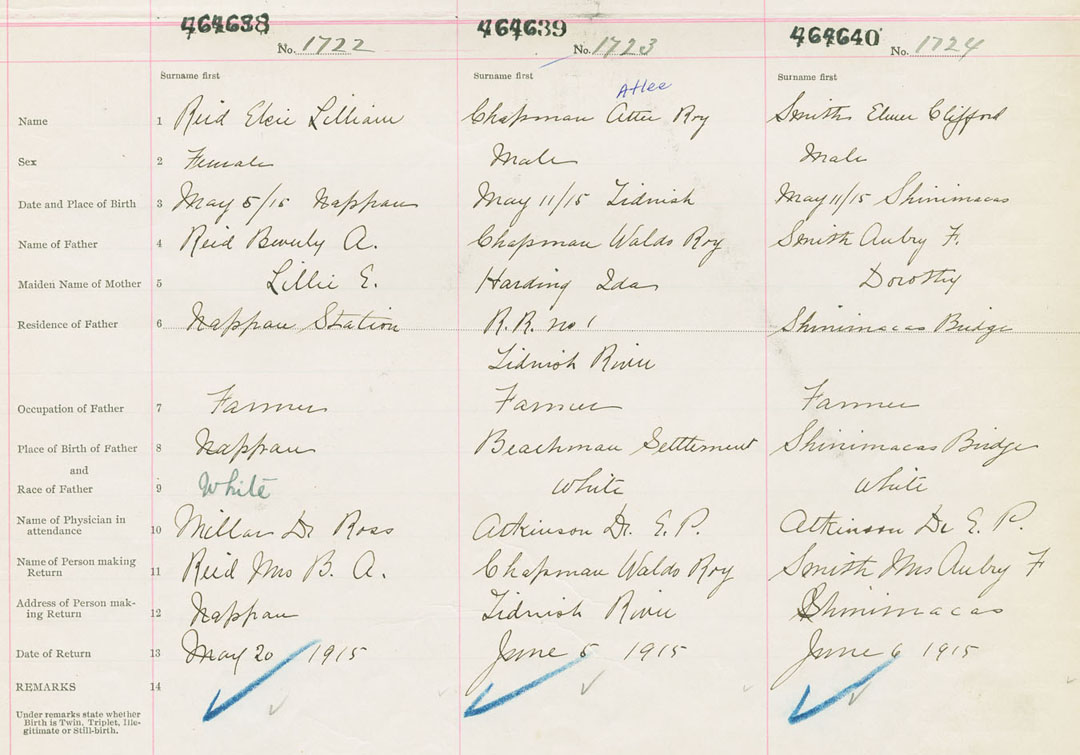 464638 464639 464640
No. 1722 No. 1723 No. 1724
Surname first Surname first Surname first
Atlee
Name 1 Reid Elsie Lillian Chapman Attee Roy Smith Elmer Clifford
Sex 2 Female Male Male
Date and Place of Birth 3 May 5/15 Nappan May 11/15 Tidnish May 11/15 Shinimacas
Name of Father 4 Reid Beverly A. Chapman Waldo Roy Smith Aubry F.
Maiden Name of Mother 5 Lillie E. Harding Ida Dorothy
Residence of Father 6 Nappan Station R.R. no 1 Shinimacas Bridge
Tidnish River
Occupation of Father 7 Farmer Farmer Farmer
Place of Birth of Father 8 Nappan Beachman Settlement Shinimacas Bridge
and
Race of Father 9 White White White
Name of Physician in
attendance 10 Millar Dr Ross Atkinson Dr. E. P. Atkinson Dr E. P.
Name of Person making
Return 11 Reid Mrs B. A. Chapman Waldo Roy Smith Mrs Aubry F
Address of Person mak-
ing Return 12 Nappan Tidnish River Shinimacas
Date of Return 13 May 20 1915 June 5 1915 June 6 1915
REMARKS 14
Under remarks state whether
Birth is Twin, Triplet, Ille-
gitimate or Still-birth.